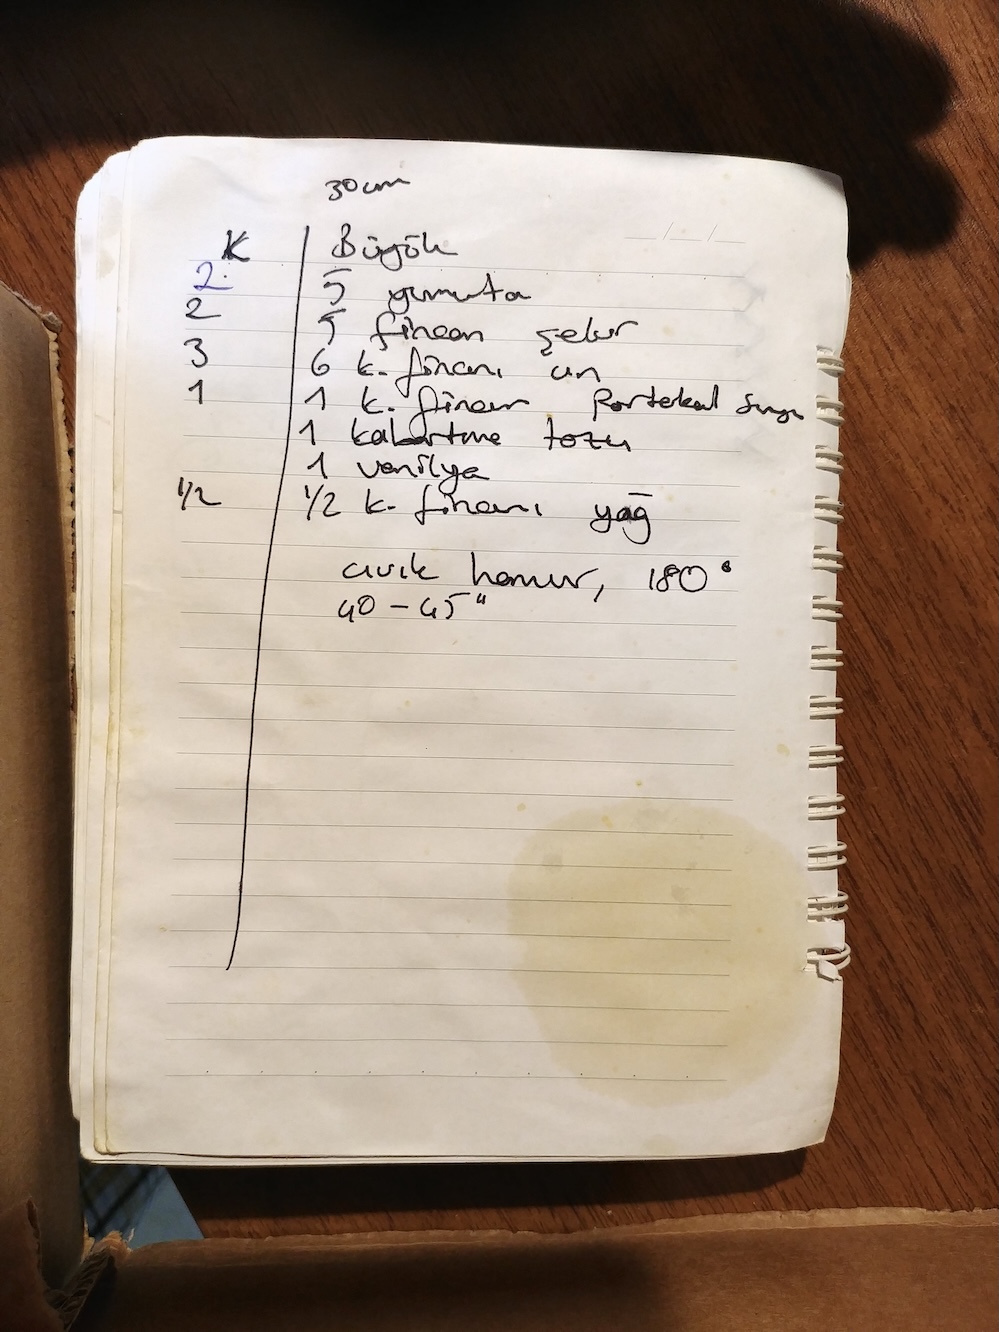 30 cm
K Büyük
2. 5 yumurta
2 5 fincan şeker
3 6 k. fincanı un
1 1 k. fincan Portakal suyu
1 kabartma tozu
1 vanilya
1/2 1/2 k. fincanı yağ
cıvık hamur, 180°
40 - 45"